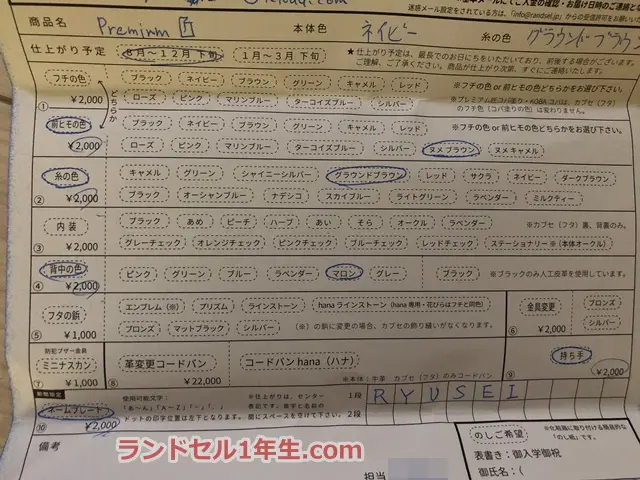 迷惑メール設定をされている方は、「info@randsel.jp」からの受信許可をお願いい
商品名 Premium 本体色 ネイビー 糸の色 グラウンドブラウン
仕上がり予定 8月～12月 下旬 1月～3月 下旬 ★仕上がり予定は、最長でのお日にちをいただいており、前後する場合がございます。
ご理解、ご了承ください。商品が仕上がり次第、すぐにご連絡いたします。
フチの色 ブラック ネイビー ブラウン グリーン キャメル レッド ※フチの色 or 前ヒモの色どちらかをお選び下さい。
① ¥2,000 どちらか ローズ ピンク マリンブルー ターコイズブルー シルバー
のフチ色(コバ塗りの色)は変わりません。
前ヒモの色 ブラック ネイビー ブラウン グリーン キャメル レッド ※フチの色 or 前ヒモの色どちらかをお選び下さい。
¥2,000 ローズ ピンク マリンブルー ターコイズブルー シルバー ヌメブラウン ヌメキャメル
糸の色 キャメル グリーン シャイニーシルバー グラウンドブラウン レッド サクラ ネイビー ダークブラウン
② ¥2,000 ブラック オーシャンブルー ナデシコ スカイブルー ライトグリーン ラベンダー ミルクティー
内装 ブラック あめ ピーチ ハーブ あい そら オークル ラベンダー ※カブセ(フタ)裏、背裏のみ。
③ ¥2,000 グレーチェック オレンジチェック ピンクチェック ブルーチェック レッドチェック ステーショナリー ※(本体オークル)
背中の色 ピンク グリーン ブルー ラベンダー マロン グレー ブラック ※ブラックのみ人工皮革を使用しています。
④ ¥2,000
フタの鋲 エンブレム(※) プリズム ラインストーン hanaラインストーン(hana専用・花びらはフチと同色) 金具変更 ブロンズ
⑤ ¥1,000 ブロンズ マットブラック シルバー (※)の鋲に変更の場合、カブセの飾り縫いがなくなります。 ⑥ ¥2,000 シルバー
防犯ブザー金具
ミニナスカン 革変更コードバン コードバン hana(ハナ) 持ち手
⑦ ¥1,000 ⑧ ¥22,000 ※本体:牛革 カブセ(フタ)のみコードバン ⑨ ¥2,000
期間限定
ネームプレート 使用可能文字: ※仕上がりは、センター 1段 RYUSEI
「あ～ん」「A～Z」「-」「.」 表記です。苗字と名前の
⑩ ¥2,000 ドットの印字位置は左下となります。 間にスペースを空けて下さい。 2段
備考 のしご希望 ※化粧箱に取り付ける簡易的な
「のし紙」です。
ランドセル1年生.com
表書き:御入学御祝
担当 御氏名:(